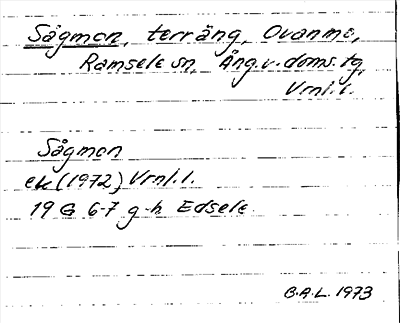 Sågmon, terräng, Ovanmo,
Ramsele sn, Ång.v.doms.tg,
Vrnl.l.
Sågmon
ek (1972) Vrnl.l.
19 G 6-7 g-h Edsele
B.A.L. 1973